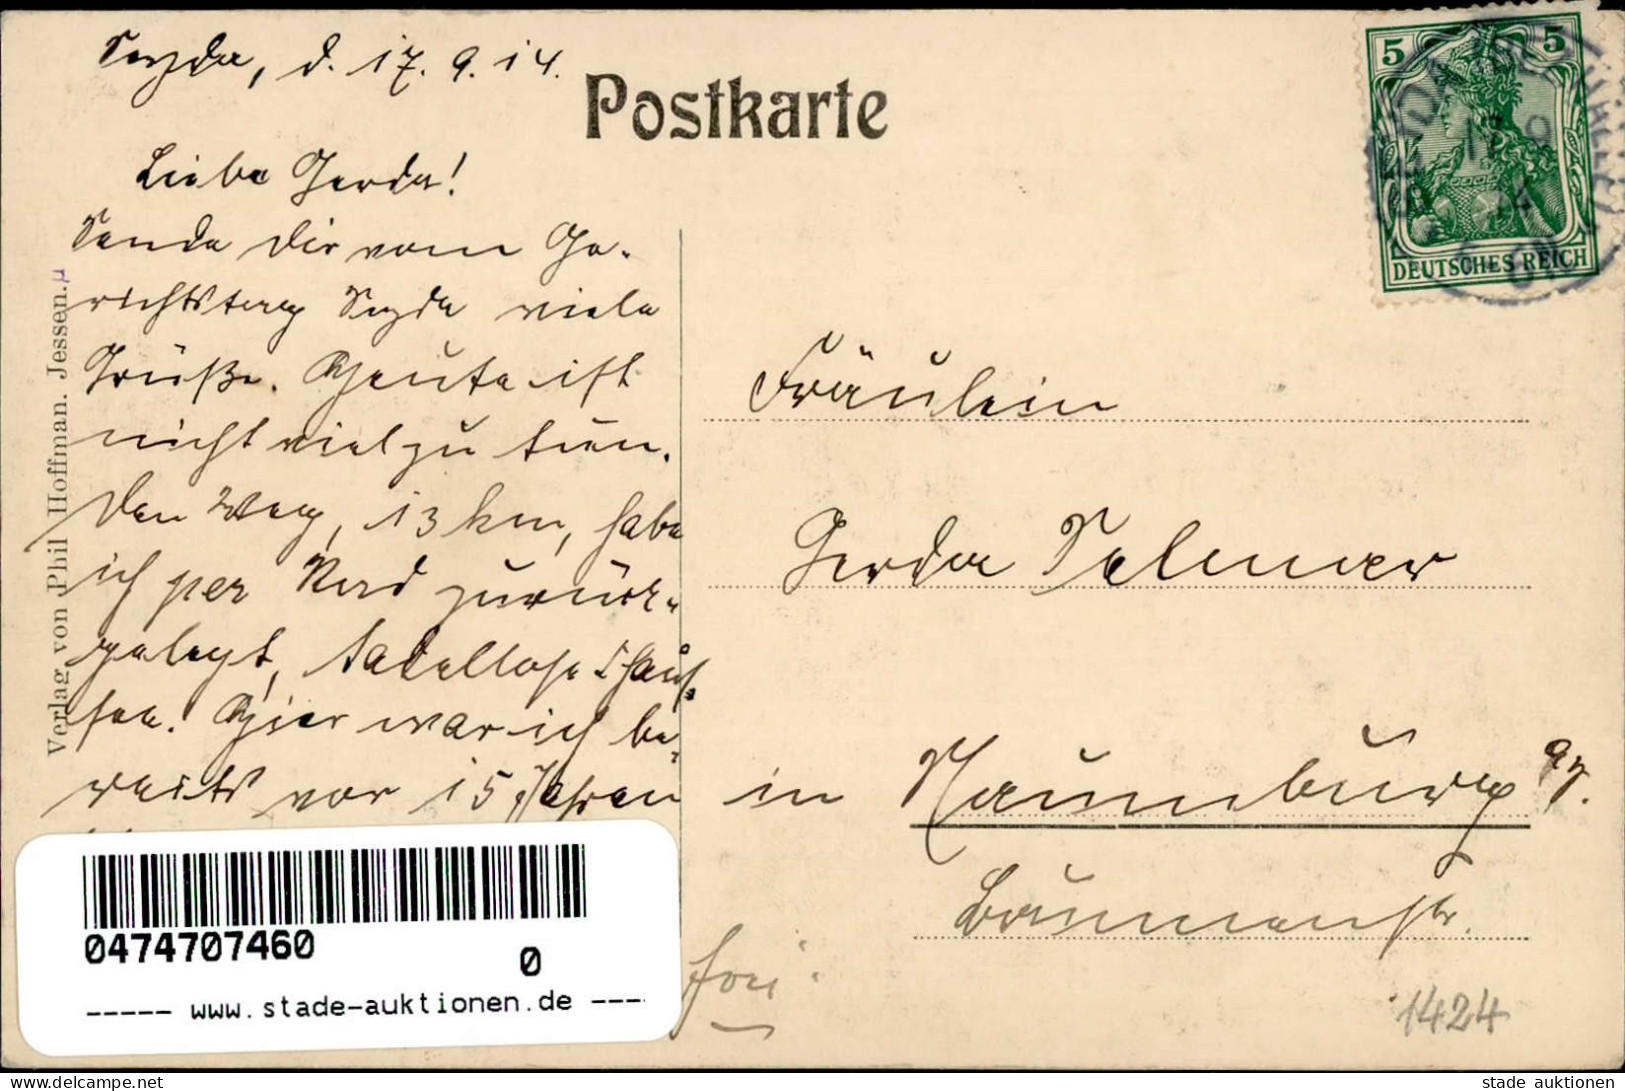 Seyda, d. 17.9.14.
Postkarte
Liebe Gerda!
Sende Dir vom Ge-
richtstag Seyda viele
Grüße. Heute ist
nicht viel zu tun.
Den Weg, 13 km, habe
ich per Rad zurück-
gelegt, tadellose Chaus-
seen. Hier war ich be-
reits vor 15 Jahren
Verlag von Phil Hoffman. Jessen.
5 5
DEUTSCHES REICH
Fräulein
Gerda
in Naumburg a/S.
0474707460
0
----- www.stade-auktionen.de ---
1424
www.delcampe.net
stade auktionen